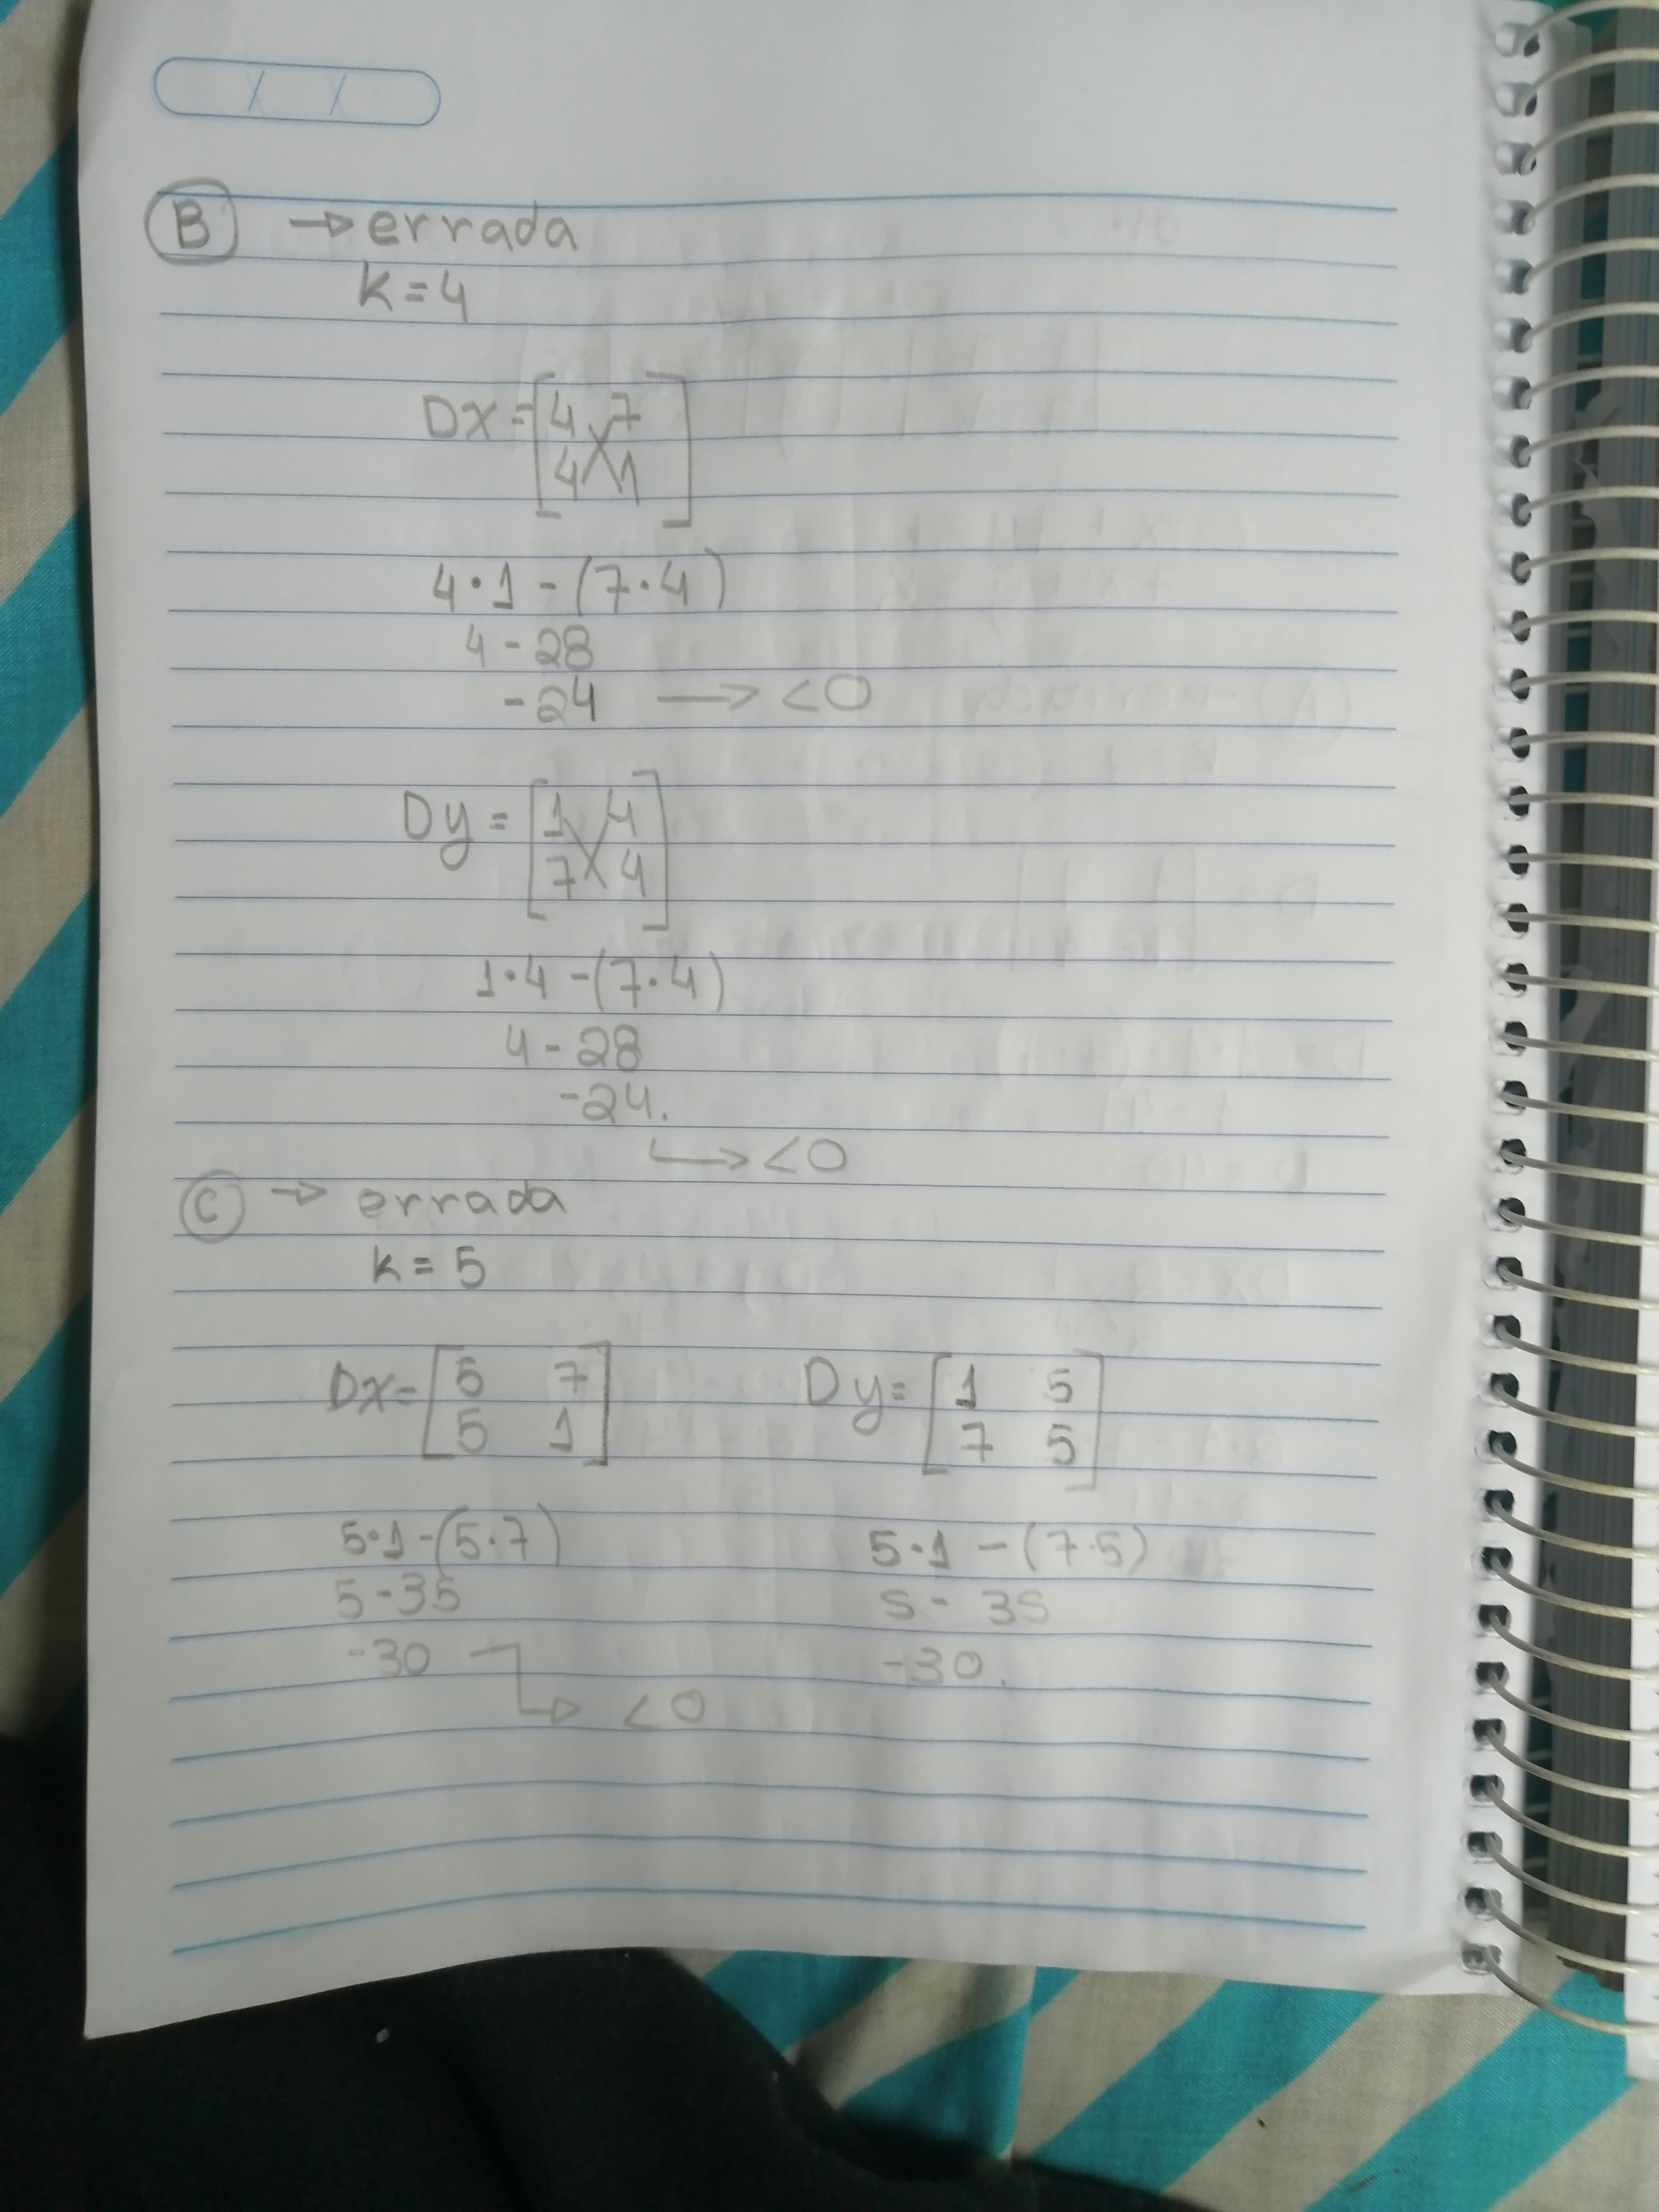 B → errada
K = 4
Dx = [4 7
4 1]
4·1 - (7·4)
4 - 28
-24 → <0
Dy = [1 4
7 4]
1·4 - (7·4)
4 - 28
-24.
→ <0
C → errada
K = 5
Dx = [5 7
5 1]
Dy = [1 5
7 5]
5·1 - (5·7)
5 - 35
-30
→ <0
5·1 - (7·5)
5 - 35
-30.